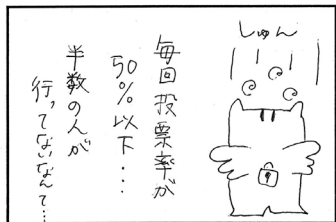 しゅん
毎回投票率が
50%以下…
半数の人が
行ってないなんて…